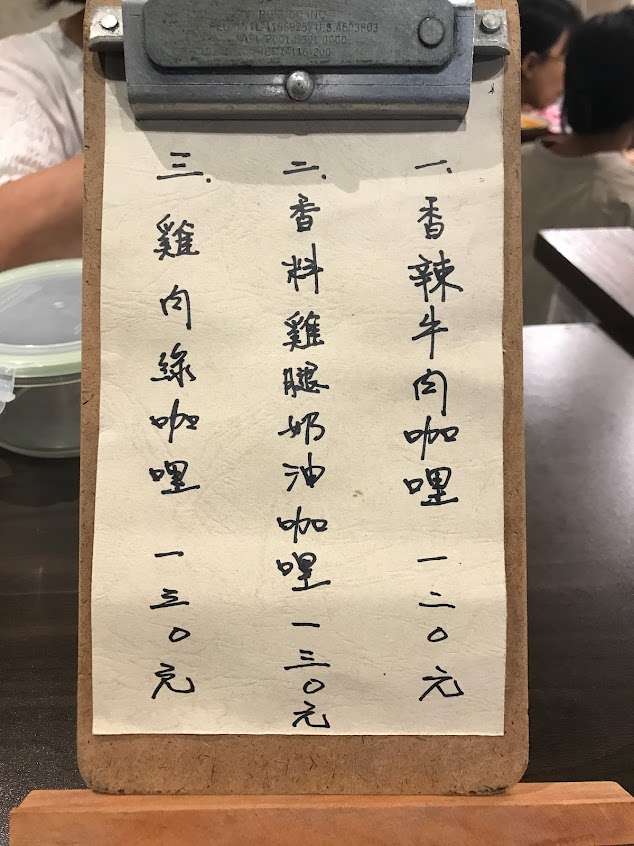 一. 香辣牛肉咖哩 一二〇元
二. 香料雞腿奶油咖哩 一三〇元
三. 雞肉綠咖哩 一三〇元